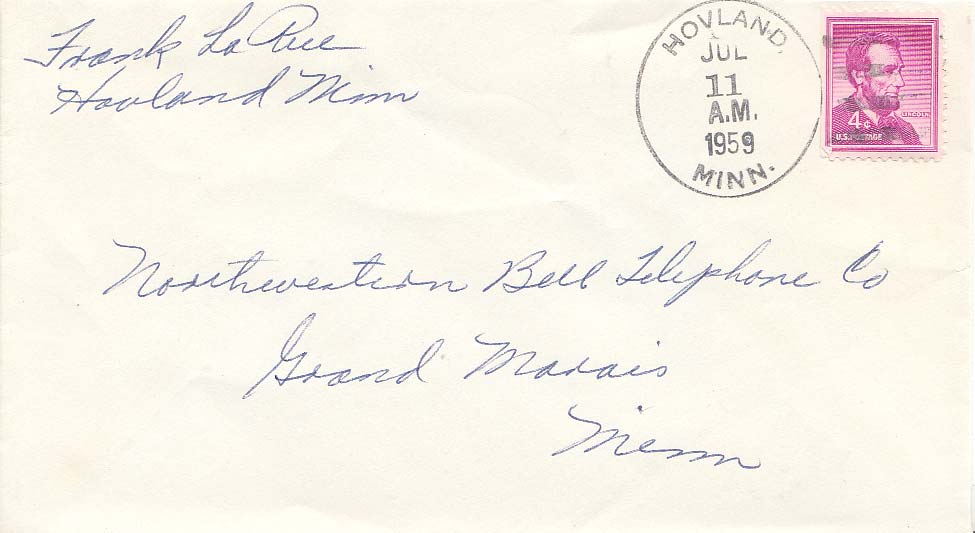 Frank La Rue
Hovland Minn
HOVLAND,
JUL
11
A.M.
1959
MINN.
LINCOLN
4¢
U.S. POSTAGE
Northwestern Bell Telephone Co
Grand Marais
Minn